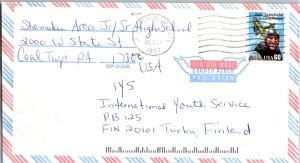 Shamokin Area Jr/Sr High School
2000 W State St
Coal Twp PA 17866
USA
ZIP CODE
1997
USA60
VIA AIR MAIL
CORREO AEREO
PAR AVION
IYS
International Youth Service
PB 125
FIN 20101 Turku, Finland